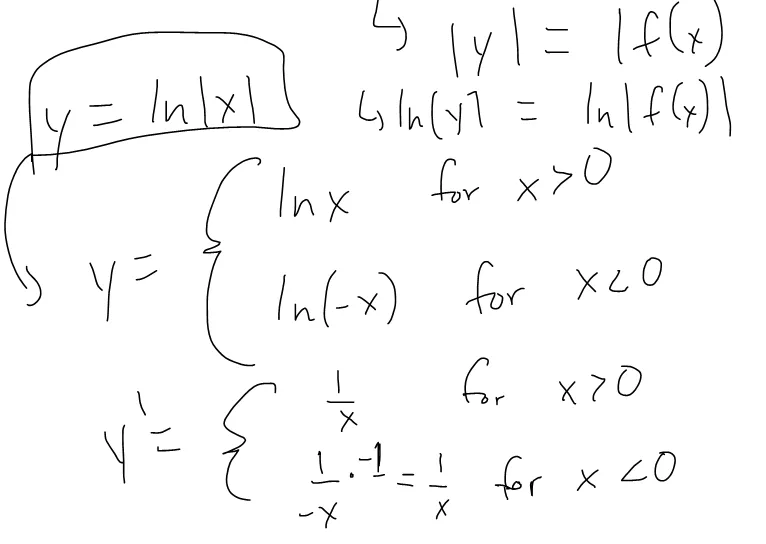 ↳ |y| = |f(x)
y = ln|x|
↳ ln|y| = ln|f(x)|
y = { ln x for x > 0
ln(-x) for x < 0
y' = { 1/x for x > 0
1/-x · -1 = 1/x for x < 0